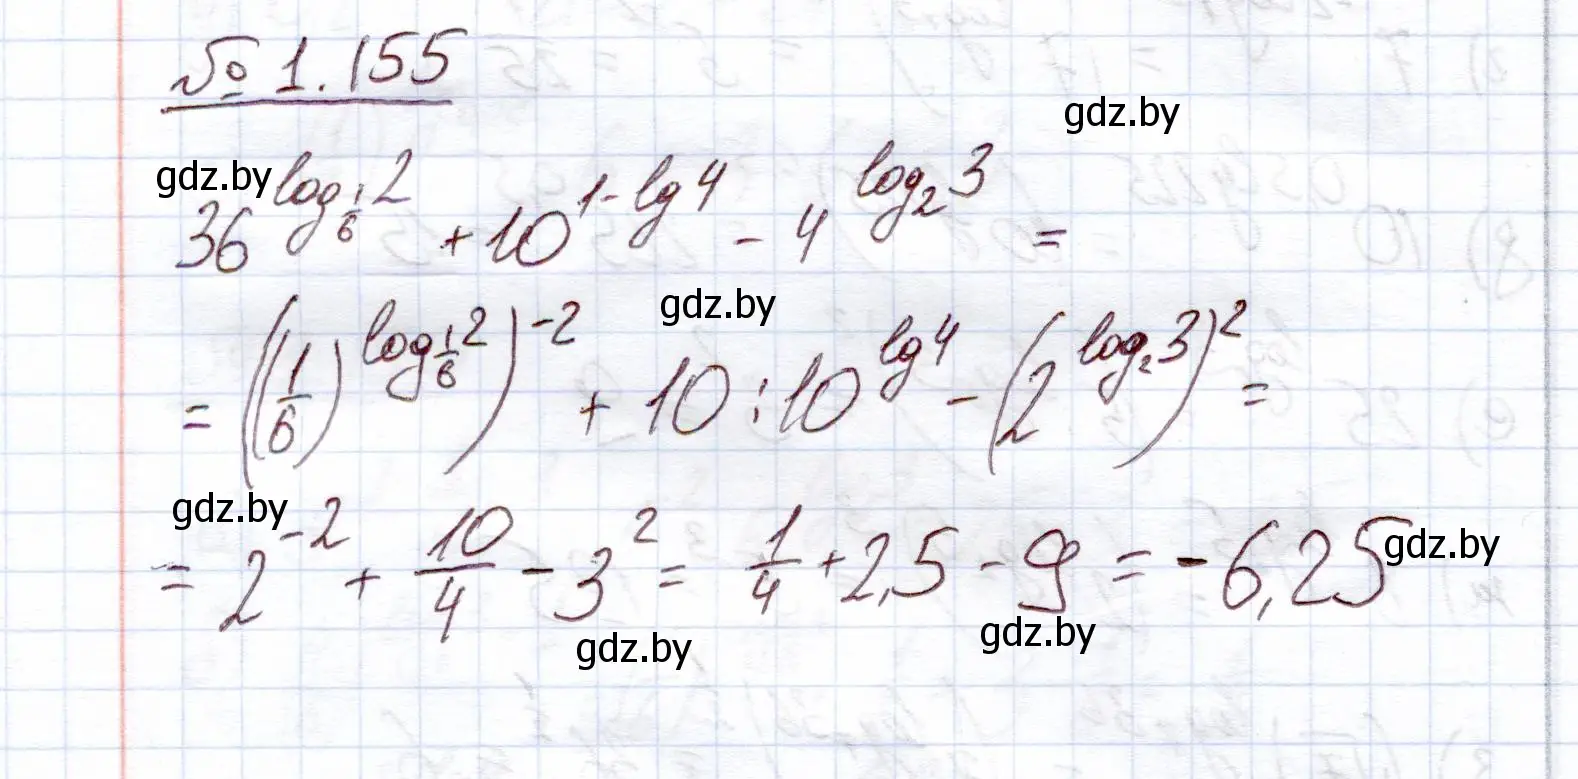 № 1.155
gdz.by
gdz.by
36^{log_{1/6} 2} + 10^{1-lg 4} - 4^{log_2 3} =
gdz.by
= ((1/6)^{log_{1/6} 2})^{-2} + 10 : 10^{lg 4} - (2^{log_2 3})^2 =
gdz.by
= 2^{-2} + 10/4 - 3^2 = 1/4 + 2,5 - 9 = -6,25
gdz.by
gdz.by
gdz.by